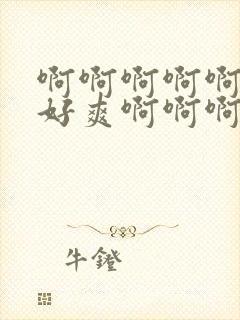 啊啊啊啊啊
好爽啊啊啊
牛鐙